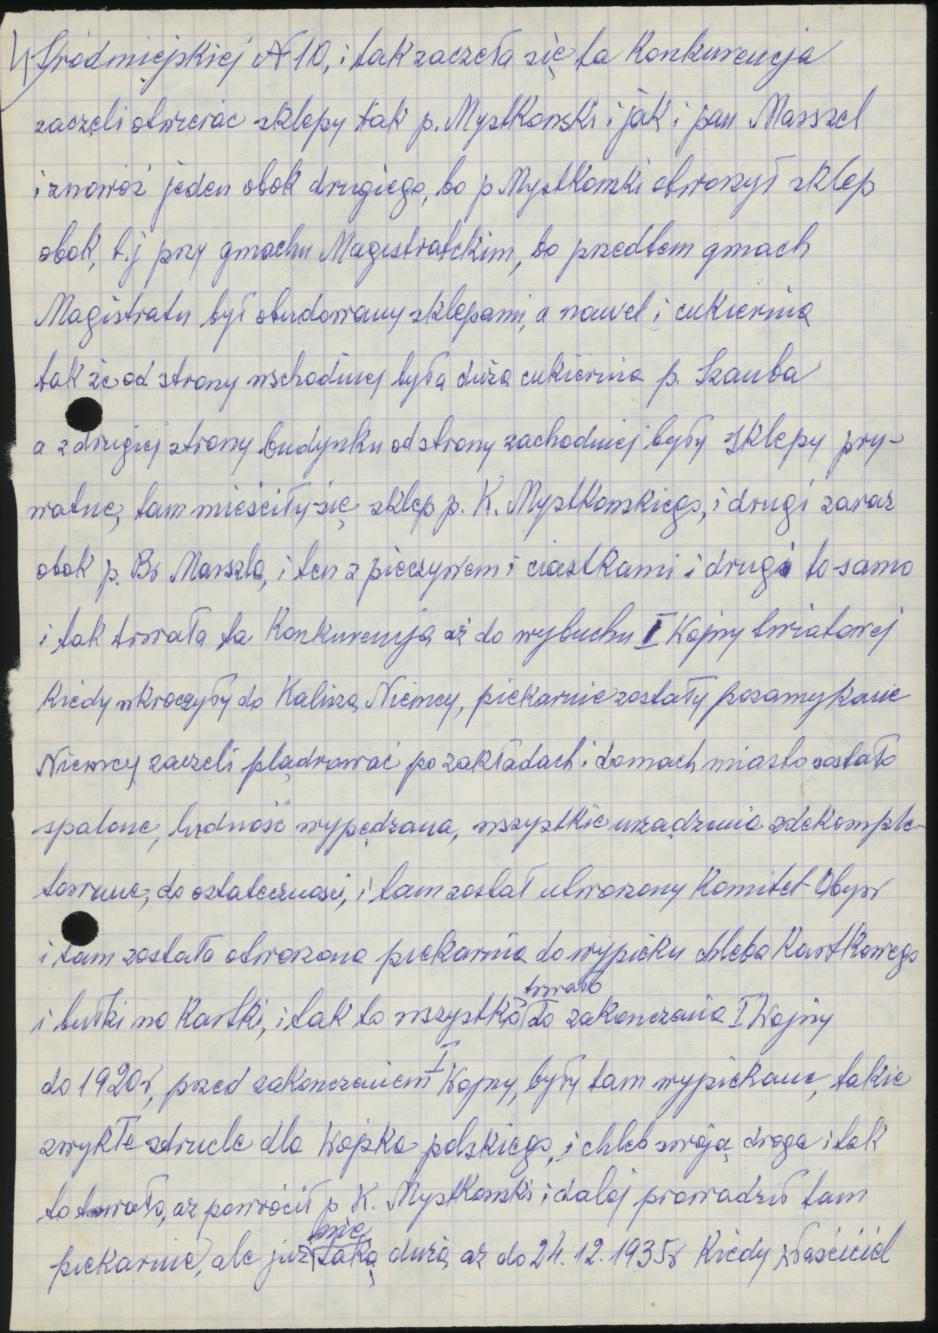 4 Śródmiejskiej N 10, i tak zaczeła się ta Konkurencja
zaczęli otwierac sklepy tak p. Mystkowski i jak i pan Marszel
i znowóż jeden obok drugiego, bo p Mystkowski otworzył sklep
obok, t.j przy gmachu Magistratckim, bo przedtem gmach
Magistratu był obudowany sklepami, a nawet i cukiernią
tak że od strony wschodniej była duża cukiernia p. Szauba
a z drugiej strony budynku od strony zachodniej były sklepy pry-
watne, tam mieściły się sklep p. K. Mystkowskiego, i drugi zaraz
obok p. Br Marszla, i ten z pieczywem i ciastkami i drugi to-samo
i tak trwała ta Konkurencja aż do wybuchu I Wojny światowej
Kiedy wkroczyły do Kalisza Niemcy, piekarnie zostały pozamykane
Niemcy zaczeli plądrować po zakładach i domach miasto zostało
spalone, ludność wypędzana, wszystkie urządzenia zdekomple-
towane, do ostateczności, i tam został utworzony Komitet Obyw
i tam została otworzona piekarnia do wypieku chleba Kartkowego
i bułki na Kartki, i tak to wszystko trwało do zakonczenia I Wojny
do 1920r, przed zakonczeniem I Wojny, były tam wypiekane, takie
zwykłe strucle dla Wojska polskiego, i chleb swoją droga i tak
to trwało, aż powrócił p K. Mystkowski i dalej prowadził tam
piekarnie, ale już nie taką dużą aż do 24.12.1935r Kiedy właściciel